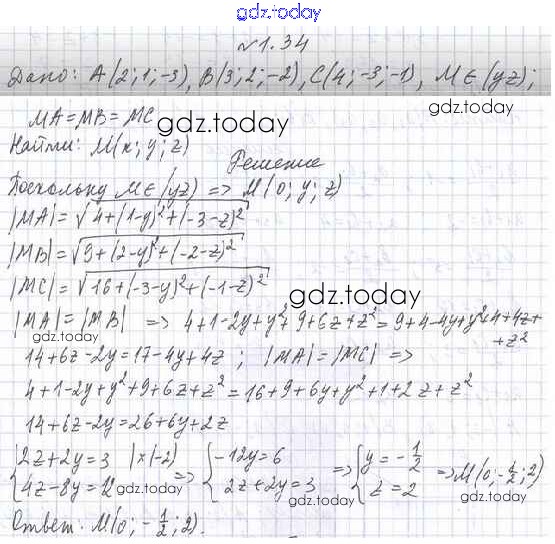 gdz.today
№1.34
Дано: A(2;1;-3), B(3;2;-2), C(4;-3;-1), M∈(yz);
gdz.today
MA=MB=MC
gdz.today
Найти: M(x; y; z)
Решение
Поскольку M∈(yz) => M(0; y; z)
|MA|=√4+(1-y)²+(-3-z)²
|MB|=√9+(2-y)²+(-2-z)²
|MC|=√16+(-3-y)²+(-1-z)²
gdz.today
|MA|=|MB| => 4+1-2y+y²+9+6z+z²=9+4-4y+y²+4+4z+
+z²
gdz.today
14+6z-2y=17-4y+4z ; |MA|=|MC| =>
gdz.today
4+1-2y+y²+9+6z+z²=16+9+6y+y²+1+2z+z²
14+6z-2y=26+6y+2z
{2z+2y=3 |×(-2)
4z-8y=12 => {-12y=6
2z+2y=3 => {y=-1/2
z=2 => M(0;-1/2;2)
gdz.today
gdz.today
gdz.today
Ответ: M(0; -1/2; 2).